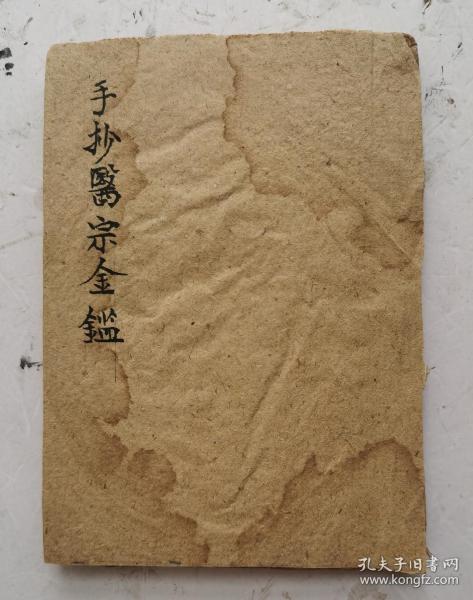 手抄醫宗金鑑
孔夫子旧书网
www.kongfz.com